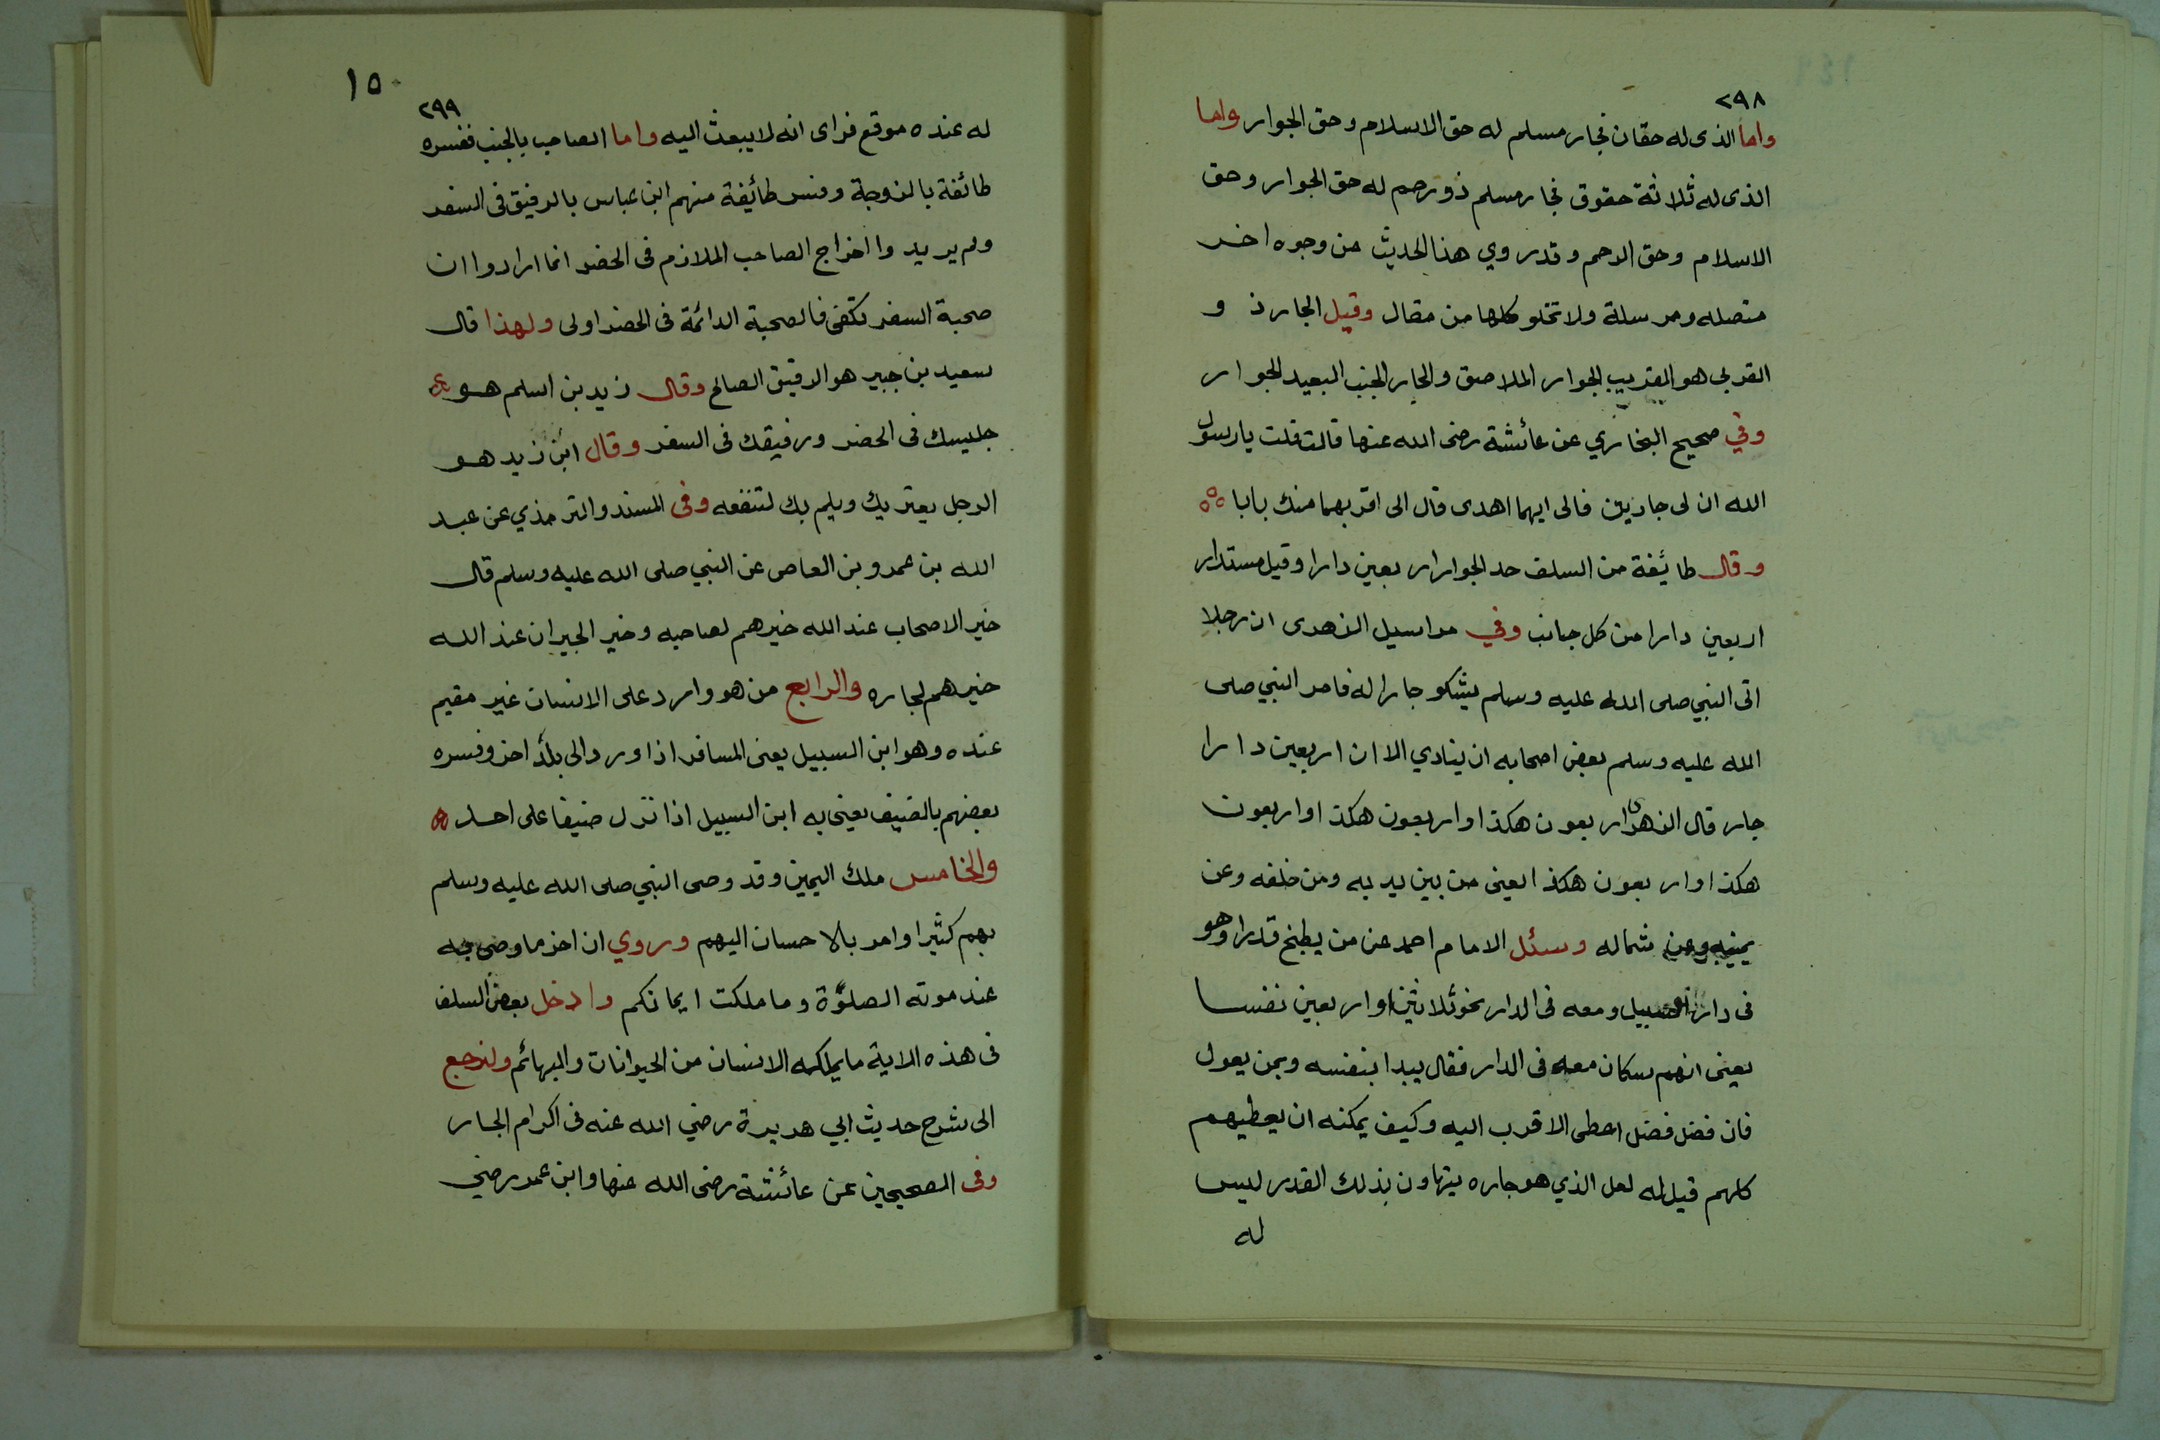 ٢٩٨
واما الذى له حقان فجار مسلم له حق الاسلام وحق الجوار واما
الذى له ثلاثة حقوق فجار مسلم ذو رحم له حق الجوار وحق
الاسلام وحق الرحم وقد روي هذا الحديث من وجوه اخر
متصله ومرسلة ولا تخلو كلها من مقال وقيل الجار ذ و
القربى هو القريب الجوار الملاصق والجار الجنب البعيد الجوار
وفي صحيح البخاري عن عائشة رضى الله عنها قالت قلت يا رسول
الله ان لى جارين فالى ايهما اهدى قال الى اقربهما منك بابا
وقال طائفة من السلف حد الجوار اربعين دارا وقيل مستدار
اربعين دارا من كل جانب وفي مراسيل الزهرى ان رجلا
اتى النبي صلى الله عليه وسلم يشكو جارا له فامر النبي صلى
الله عليه وسلم بعض اصحابه ان ينادي الا ان اربعين دارا
جار قال الزهرى اربعون هكذا واربعون هكذا واربعون
هكذا واربعون هكذا يعنى من بين يديه ومن خلفه وعن
يمينه وعن شماله وسئل الامام احمد عن من يطبخ قدرا وهو
فى دار السبيل ومعه فى الدار نحو ثلاثين او اربعين نفسا
يعنى انهم سكان معه فى الدار فقال يبدا بنفسه وبمن يعول
فان فضل فضل اعطى الاقرب اليه وكيف يمكنه ان يعطيهم
كلهم قيل له لعل الذي هو جاره يتهاون بذلك القدر ليس
له
١٥٠
٢٩٩
له عنده موقع فراى انه لا يبعث اليه واما الصاحب بالجنب ففسره
طائفة بالزوجة وفسر طائيفة منهم ابن عباس بالرفيق فى السفر
ولم يريدوا اخراج الصاحب الملازم فى الحضر انما ارادوا ان
صحبة السفر تكفى فالصحبة الدائمة فى الحضر اولى ولهذا قال
سعيد بن جبير هو الرفيق الصالح وقال زيد بن اسلم هو
جليسك فى الحضر ورفيقك فى السفر وقال ابن زيد هو
الرجل يعتريك ويلم بك لتنفعه وفى المسند والترمذي عن عبد
الله بن عمرو بن العاص عن النبي صلى الله عليه وسلم قال
خير الاصحاب عند الله خيرهم لصاحبه وخير الجيران عند الله
خيرهم لجاره والرابع من هو وارد على الانسان غير مقيم
عنده وهو ابن السبيل يعنى المسافر اذا ورد الى بلد اخر وفسره
بعضهم بالضيف يعنى به ابن السبيل اذا نزل ضيفا على احد
والخامس ملك اليمين وقد وصى النبي صلى الله عليه وسلم
بهم كثيرا وامر بالاحسان اليهم وروي ان اخر ما وصى به
عند موته الصلوة وما ملكت ايمانكم وادخل بعض السلف
فى هذه الاية ما يملكه الانسان من الحيوانات والبهائم ولنرجع
الى شرح حديث ابي هريرة رضي الله عنه فى اكرام الجار
وفى الصحيحين عن عائشة رضى الله عنها وابن عمر رضي